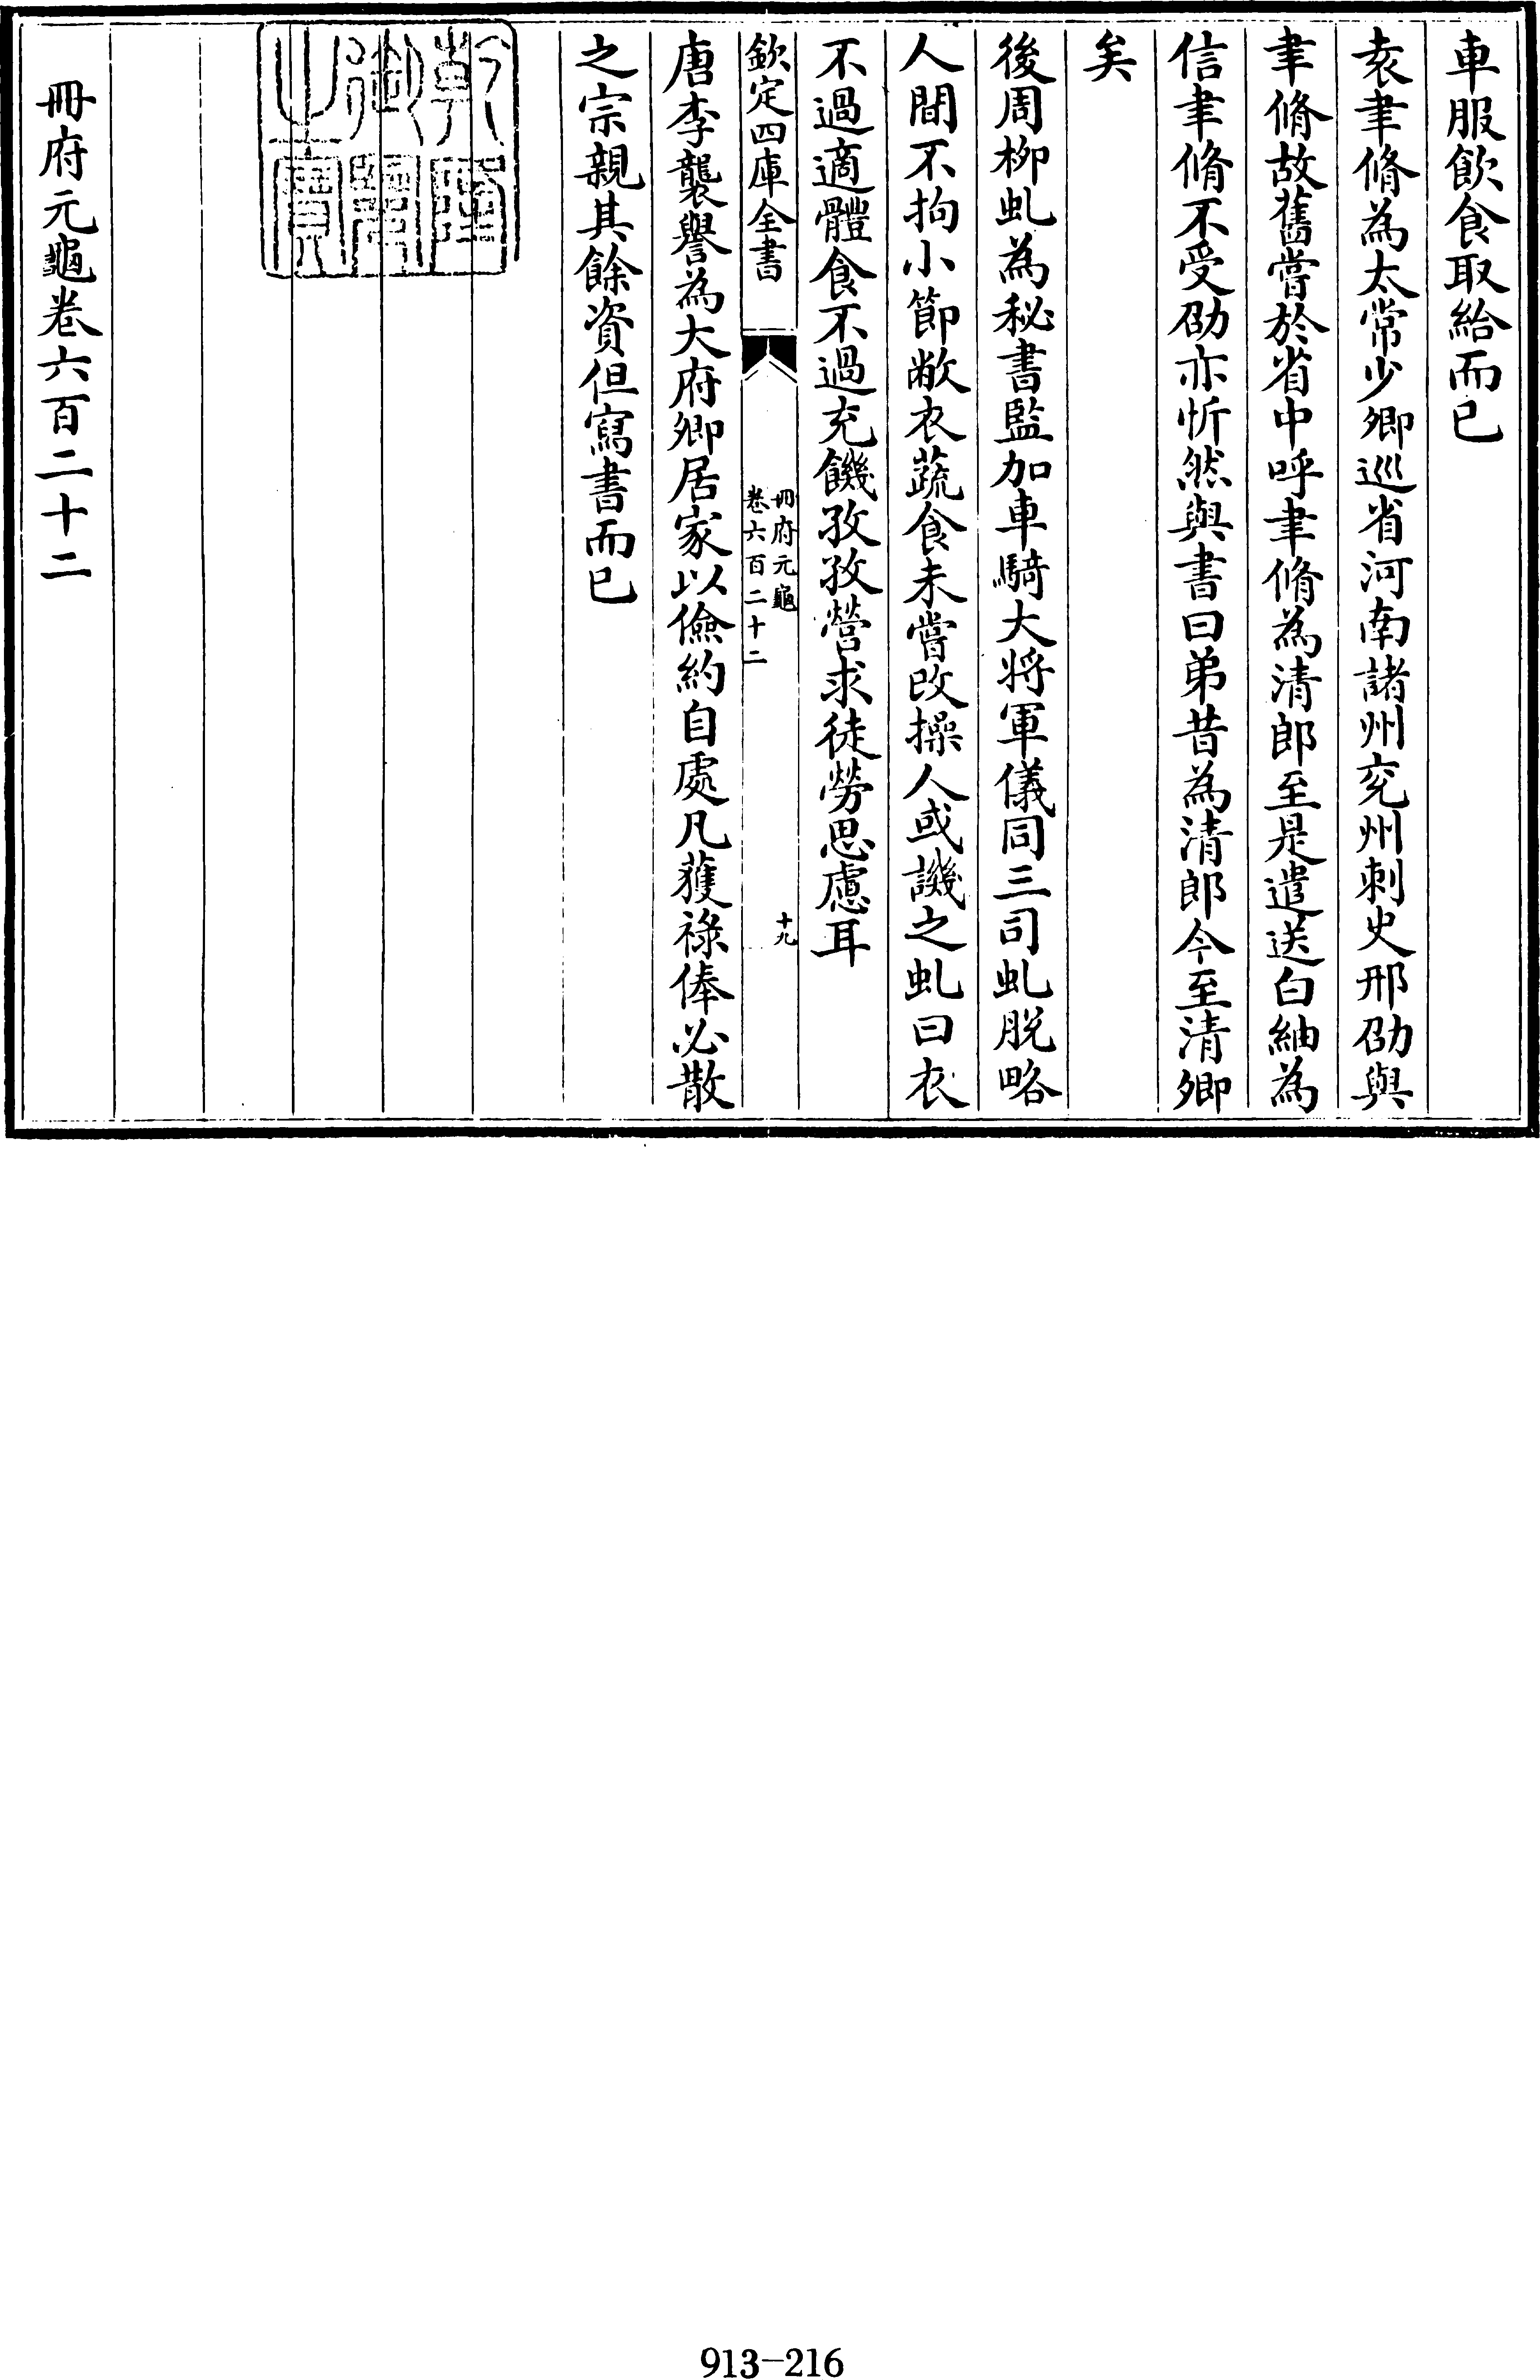 車服飲食取給而已
袁聿脩為太常少卿巡省河南諸州兖州刺史邢劭與
聿脩故舊嘗於省中呼聿脩為清郎至是遣送白紬為
信聿脩不受劭亦忻然與書曰弟昔為清郎今至清卿
矣
後周柳虬為秘書監加車騎大將軍儀同三司虬脱略
人間不拘小節敝衣蔬食未嘗改操人或譏之虬曰衣
不過適體食不過充饑孜孜營求徒勞思慮耳
欽定四庫全書
冊府元龜
卷六百二十二
十九
唐李襲譽為大府卿居家以儉約自處凡獲祿俸必散
之宗親其餘資但寫書而已
乾隆
御覽
之寶
冊府元龜卷六百二十二
913-216